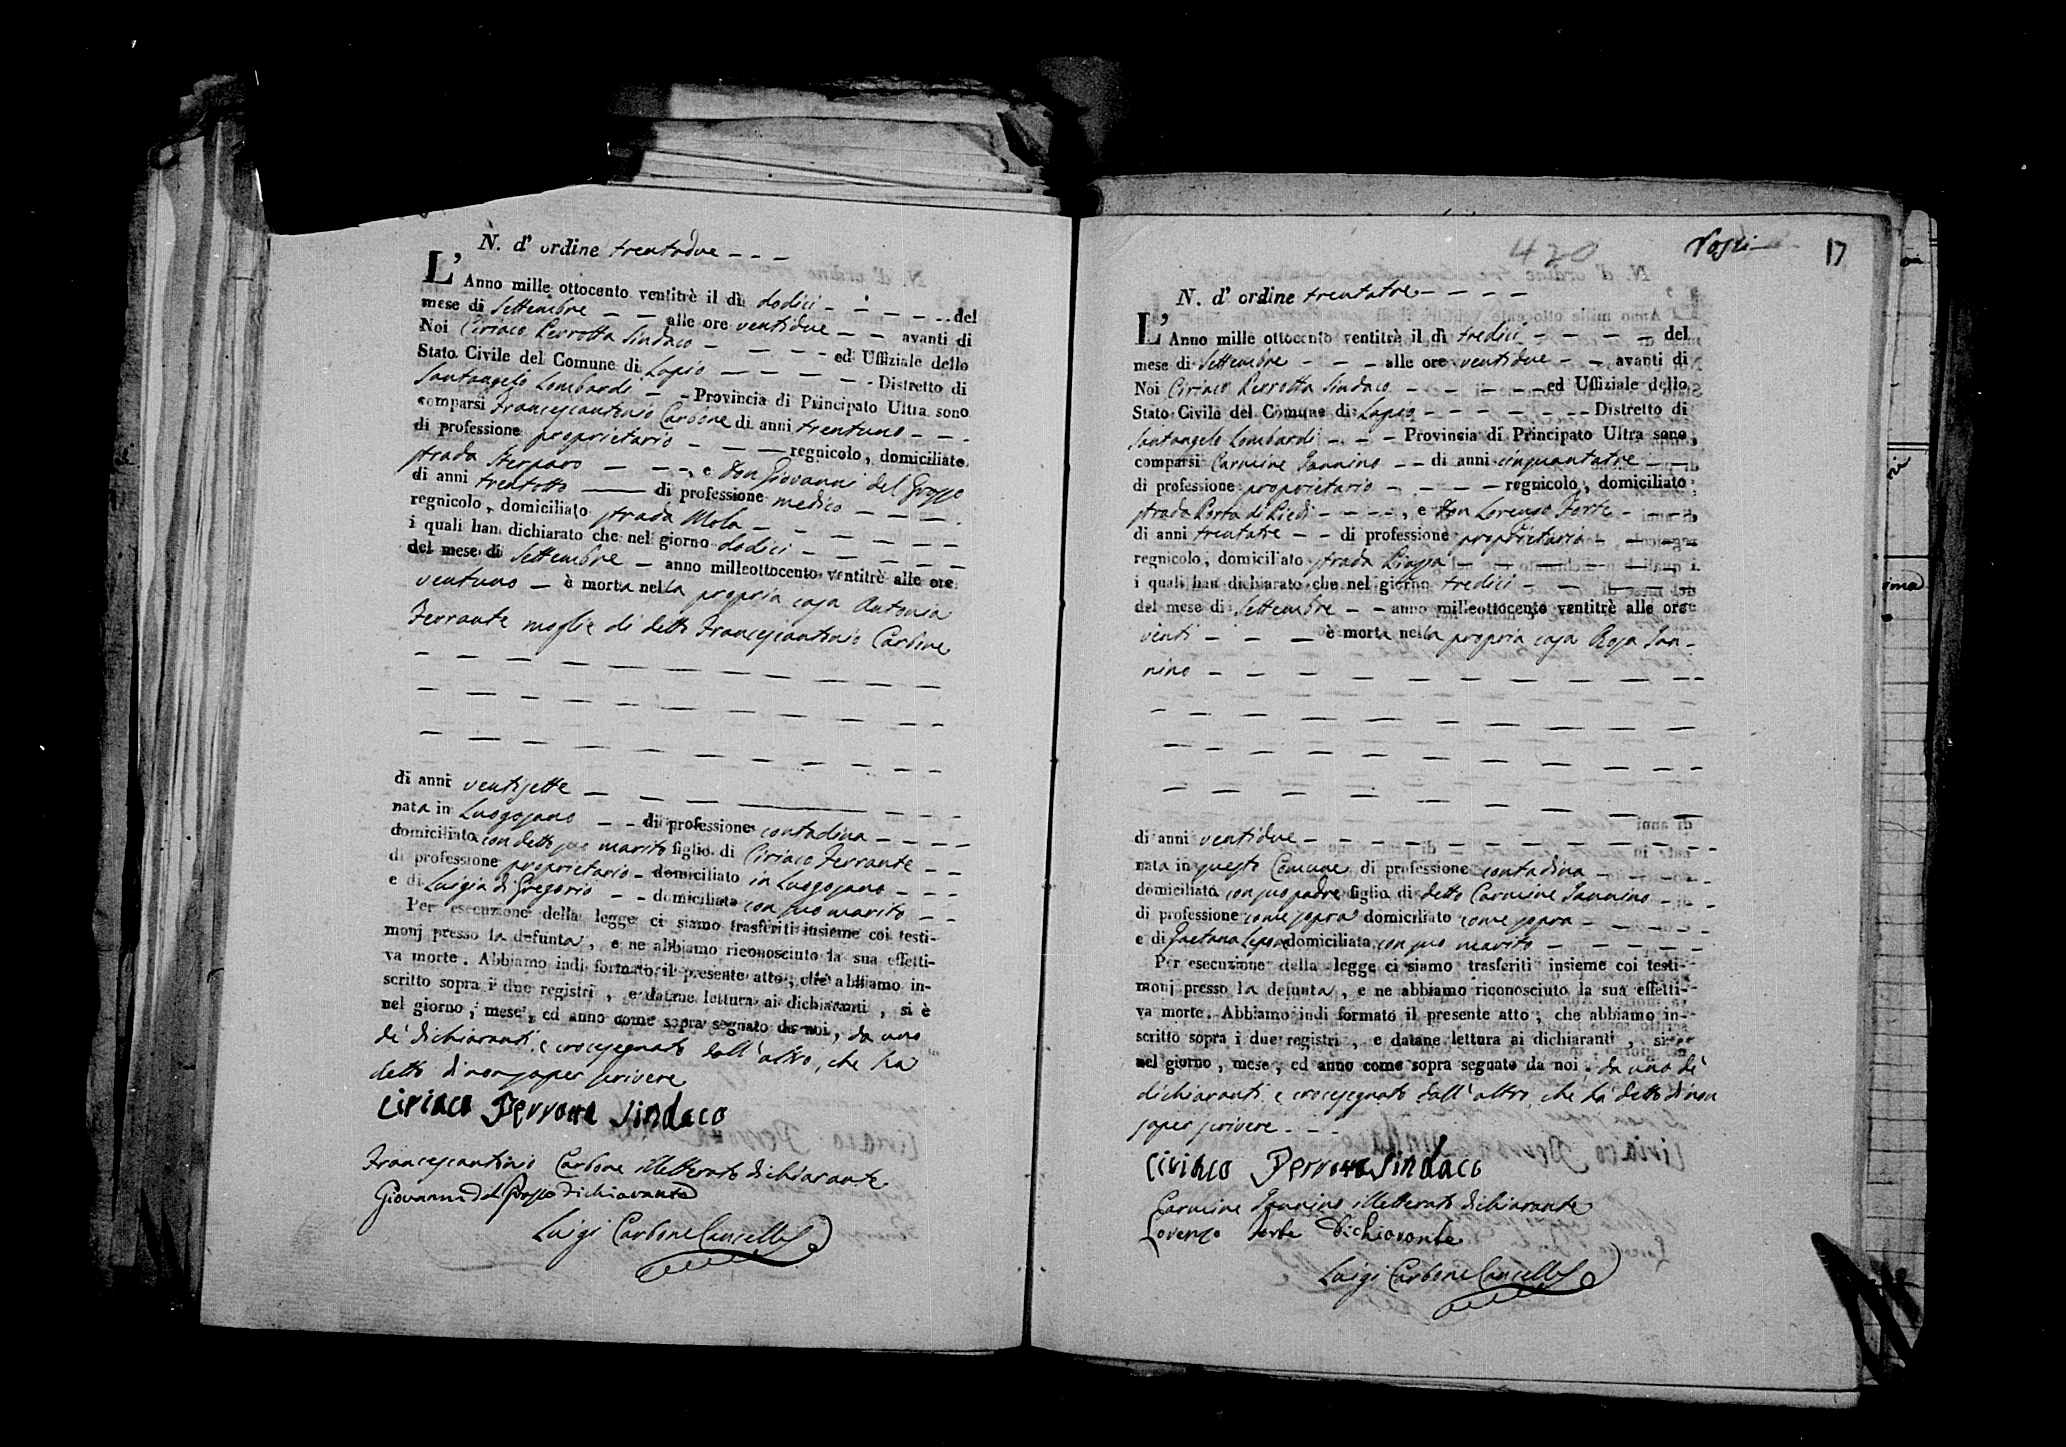 N. d' ordine trentadue - - -
L' Anno mille ottocento ventitrè il dì dodici - - - - - del
mese di Settembre - - alle ore ventidue - - avanti di
Noi Ciriaco Perrotta Sindaco - - - - ed Uffiziale dello
Stato Civile del Comune di Lapio - - - - - Distretto di
Santangelo Lombardi - - Provincia di Principato Ultra sono
comparsi Francescantonio Carbone di anni trentuno - - -
di professione proprietario - - - regnicolo, domiciliato
strada Sterparo - - -, e Don Giovanni del Grosso
di anni trentotto - di professione medico - - - -
regnicolo, domiciliato strada Mola - - - - -
i quali han dichiarato che nel giorno dodici - - - -
del mese di Settembre - anno milleottocento ventitrè alle ore
ventuno - è morta nella propria casa Antonia
Ferrante moglie di detto Francescantonio Carbone
di anni ventisette - - - - - - -
nata in Luogosano - - di professione contadina - - - -
domiciliato con detto suo marito figlio di Ciriaco Ferrante - -
di professione proprietario - domiciliato in Luogosano - - -
e di Luigia di Gregorio - - domiciliata con suo marito - -
Per esecuzione della legge ci siamo trasferiti insieme coi testi-
monj presso la defunta, e ne abbiamo riconosciuto la sua effetti-
va morte. Abbiamo indi formato il presente atto, che abbiamo in-
scritto sopra i due registri, e datane lettura ai dichiaranti, si è
nel giorno, mese, ed anno come sopra segnato da noi, da uno
de' dichiaranti, e crocesegnato dall' altro, che ha
detto di non saper scrivere
Ciriaco Perrotta Sindaco
Francescantonio Carbone illetterato dichiarante
Giovanni del Grosso dichiarante
Luigi Carbone Cancelle
420
17
N. d' ordine trentatre - - - -
L' Anno mille ottocento ventitrè il dì tredici - - - - - del
mese di Settembre - - - alle ore ventidue - - avanti di
Noi Ciriaco Perrotta Sindaco - - - - - ed Uffiziale dello
Stato Civile del Comune di Lapio - - - - - - - Distretto di
Santangelo Lombardi - - - Provincia di Principato Ultra sono
comparsi Carmine Iannino - - di anni cinquantatre - -
di professione proprietario - - - - regnicolo, domiciliato
strada Porta di Piedi - - - -, e Don Lorenzo Forte - -
di anni trentatre - - di professione proprietario - - -
regnicolo, domiciliato strada Piazza - - - - -
i quali han dichiarato che nel giorno tredici - - - -
del mese di Settembre - - anno milleottocento ventitrè alle ore
venti - - - è morta nella propria casa Rosa Ian-
nino - - - - - - - - - - -
di anni ventidue - - - - - - - - - -
nata in questo Comune di professione contadina - - - - -
domiciliata con suo padre figlia di detto Carmine Iannino - - -
di professione come sopra domiciliato come sopra - - - - -
e di Gaetana domiciliata con suo marito - - - - -
Per esecuzione della legge ci siamo trasferiti insieme coi testi-
monj presso la defunta, e ne abbiamo riconosciuto la sua effetti-
va morte. Abbiamo indi formato il presente atto, che abbiamo in-
scritto sopra i due registri, e datane lettura ai dichiaranti, si è
nel giorno, mese, ed anno come sopra segnato da noi, da uno de'
dichiaranti, e crocesegnato dall' altro, che ha detto di non
saper scrivere - - -
Ciriaco Perrotta Sindaco
Carmine Iannino illetterato dichiarante
Lorenzo Forte Dichiarante
Luigi Carbone Cancelle